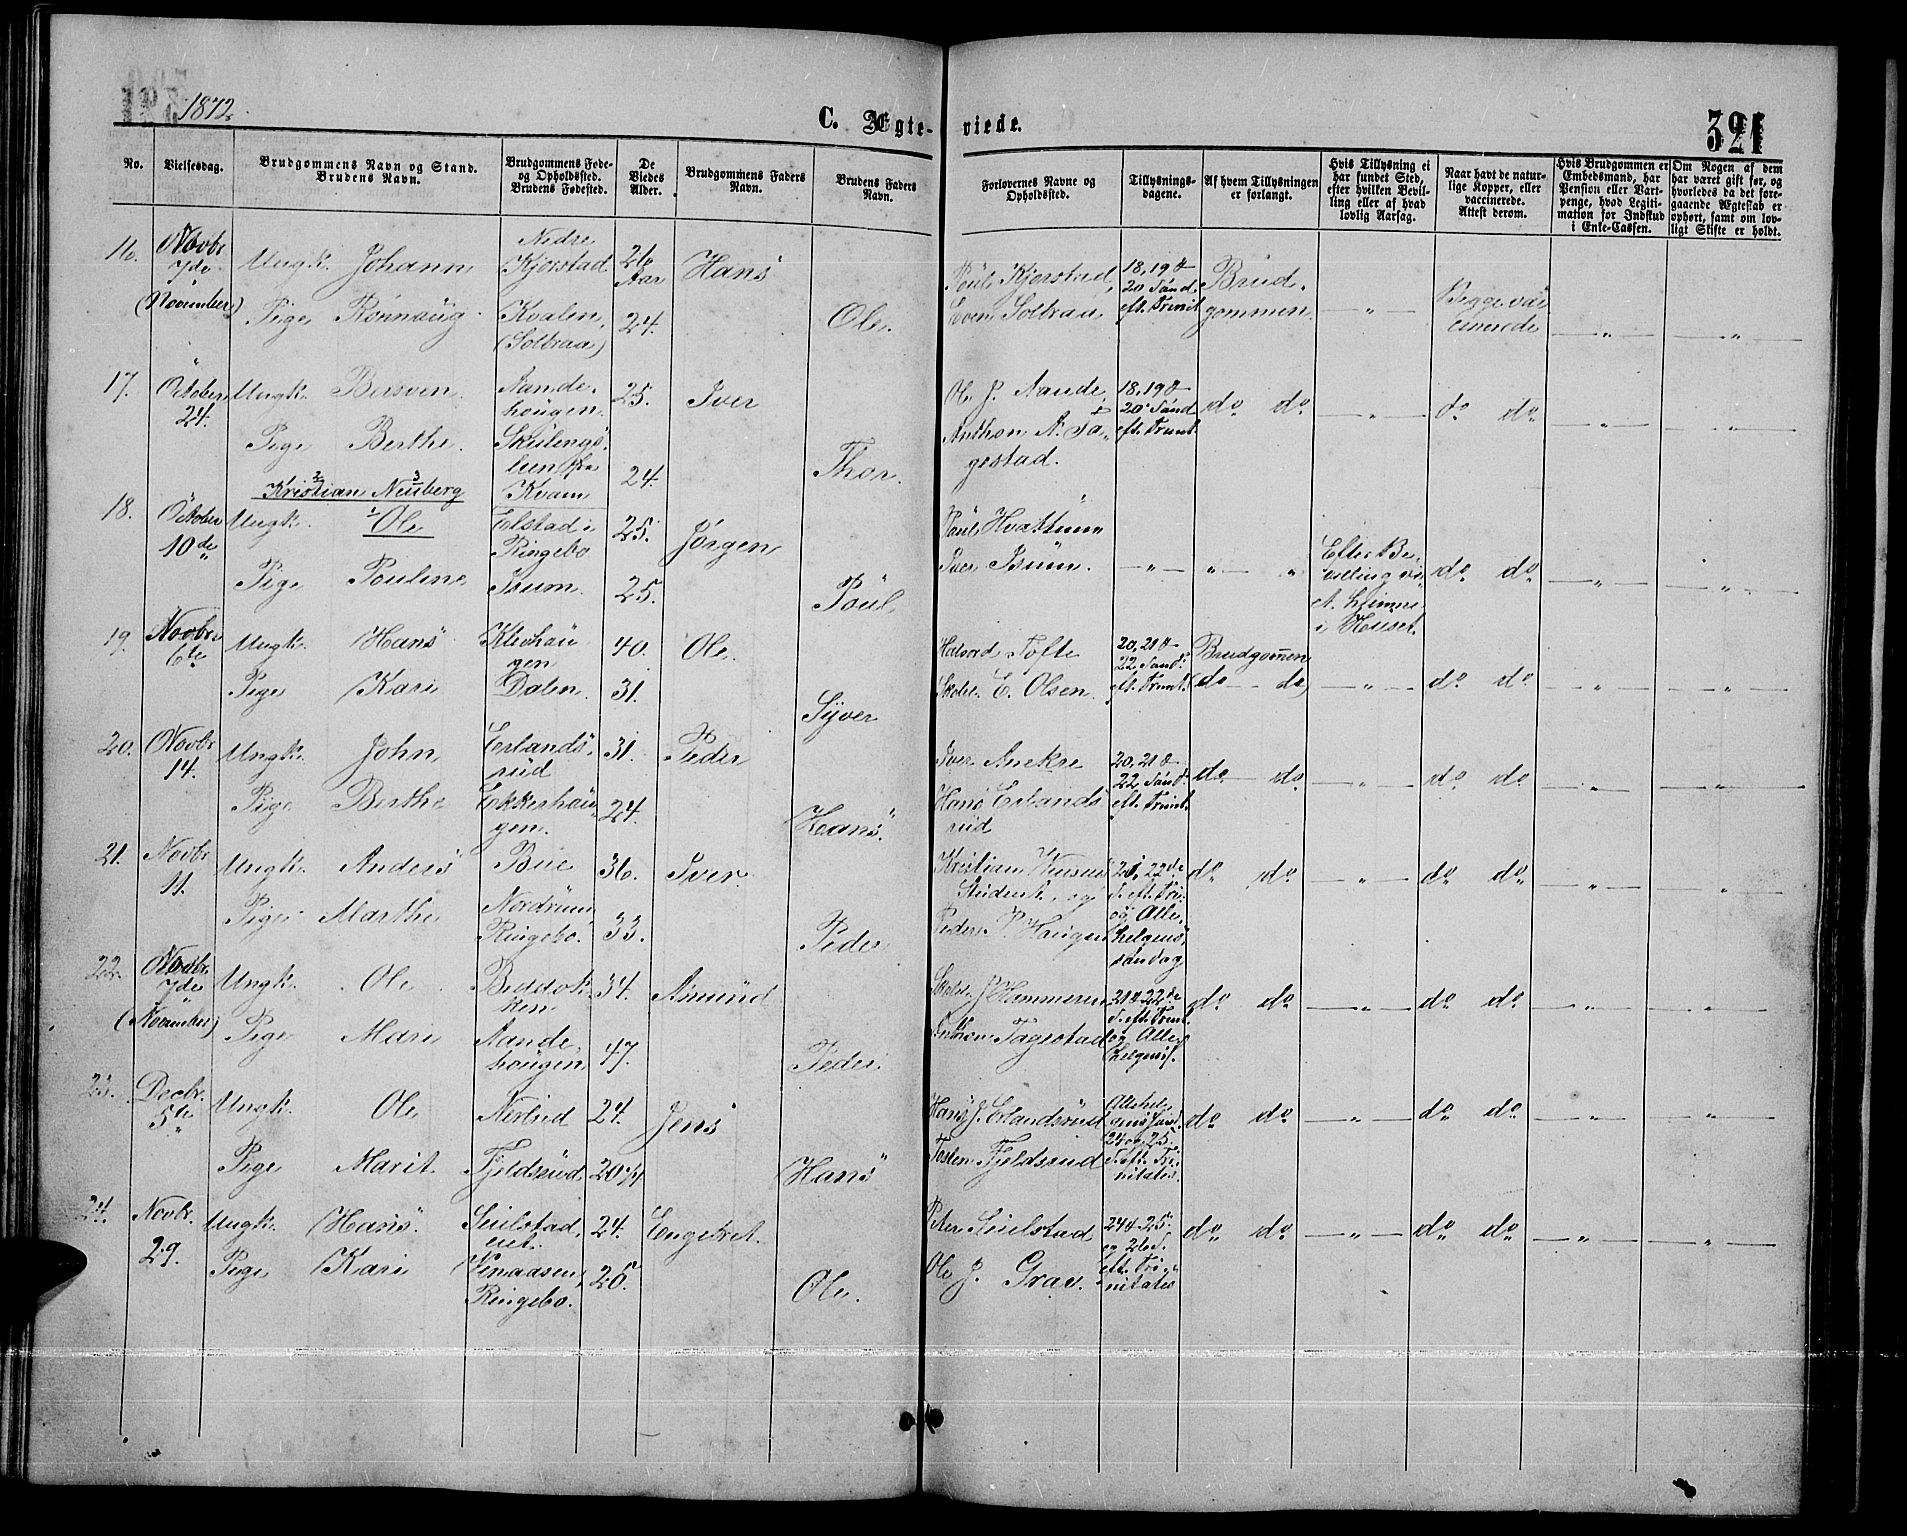 1872.
C. Ægte-
viede.
321
No.
Vielsesdag.
Brudgommens Navn og Stand.
Brudens Navn.
Brudgommens Føde-
og Opholdssted.
Brudens Fødested.
De
Viedes
Alder.
Brudgommens Faders
Navn.
Brudens Faders
Navn.
Forlovernes Navne og
Opholdssted.
Tillysnings-
dagene.
Af hvem Tillysningen
er forlangt.
Hvis Tillysning ei
har fundet Sted,
efter hvilken Bevil-
ling eller af hvad
lovlig Aarsag.
Naar havt de natur-
lige Kopper, eller
vaccinerede.
Attest derom.
Hvis Brudgommen er
Embedsmand, har
Pension eller Vart-
penge, hvad Legiti-
mation for Indskud
i Enke-Cassen.
Om Nogen af dem
har været gift før, og
hvorledes da det fore-
gaaende Ægteskab er
ophørt, samt om lov-
ligt Skifte er holdt.
16. Novbr 7de (November)
Ungk. Johann Nedre Kjorstad 26 Aar Hans
Pige Rönnaug Kvalen (Solbraa) 24. Ole.
Poul Kjorstad, Even Solbraa 18, 19 & 20 Sönd. eft. Trinit Brudgommen — " — Begge vaccinerede — " — — " —
17. October 24.
Ungk. Bersven Aandehougen 25. Iver
Pige Berthe Kvam 24. Thor.
Ole J. Aande, Anthon A. Tagestad. 18, 19 & 20 Sönd eft. Trinit. do do — " — do do — " — — " —
Kristian Neuberg
18. October 10de
Ungk. Ole Elstad i Ringebo 25. Jörgen
Pige Pouline Isum 25. Poul
Poul Hvattum
Iver Isum. — " — " — " Efter Be- i Huset. do do — " — — " —
19. Novbr 6te
Ungk. Hans Klevhaugen 40. Ole.
Pige Kari Dalen 31. Syver
Halvord Tofte 20, 21 & 22 Sönd. eft. Trinit. Brudgommen
E. Olsen. (do — do) — " — do do — " — — " —
20. Novbr 14.
Ungk. John Erlandsrud 31. Peder
Pige Berthe Ekkerhaugen. 24. Hans.
Iver Anekre 20, 21 & 22 Sönd. eft. Trinit. do do — " — do do — " — — " —
Hans Erlandsrud
21. Novbr 11.
Ungk. Anders Bue 36. Iver.
Pige Marthe Nordrum Ringebo. 33. Peder
Kristian Student, og 21, 22de S. eft. Tri. og Allehelgens söndag do do — " — do do — " — "
Peder P. Haugen
22. Novbr. 7de (November)
Ungk. Ole 34. Amund
Pige Mari Aandehougen 47. Peder
J. Hammeren 21 & 22de S. eft. Trinit. og Allehelgensf. do do — " — do do — " — — " —
Tagestad
23. Decbr. 5te
Ungk. Ole Nerlud 24. Jens
Pige Marit Fjeldsrud 20 Hans
Hans J. Erlandsrud Allehelgens Sönd. 24 og 25. S. eft. Trinitatis. do do — " — do do — " — — " —
Tosten Fjeldsrud
24. Novbr. 29.
Ungk. Hans 24. Engebret.
Pige Kari Ringebo. Ole.
Peter Seielstad 24 & 25. og 26 S. eft. Trinitatis do do — " — do do — " — — " —
Ole J. Grav.